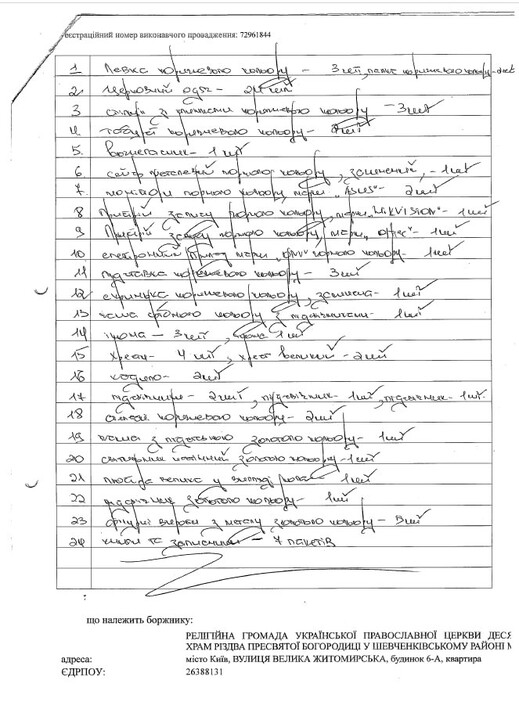 реєстраційний номер виконавчого провадження: 72961844
1 Лавка коричневого кольору – 3 шт,
2. Церковний одяг –
3 коричневого кольору – 3 шт
4 табурет коричневого кольору –
5. вогнегасник – 1 шт
6. сейф металевий чорного кольору, зачинений, – 1 шт
7. монітори чорного кольору, марки "ASUS" – 2 шт
8 Пристрій запису чорного кольору, марки "HIKVISION" – 1 шт
9 Пристрій запису чорного кольору, марки – 1 шт
10 електронний прилад марки чорного кольору – 1 шт
11 підставка коричневого кольору – 3 шт
12 скринька коричневого кольору, – 1 шт
13 чаша срібного кольору з – 1 шт
14 ікона – 3 шт, 1 шт
15 хрест – 4 шт, хрест великий – 2 шт
16 кадило – 2 шт
17 підсвічник – 2 шт, підсвічник – 1 шт, підсвічник – 1 шт.
18 коричневого кольору – 2 шт
19 чаша з золотого кольору – 1 шт
20 світильник золотого кольору – 1 шт
21 велика у вигляді – 1 шт
22 підсвічник золотого кольору – 1 шт
23 з металу золотого кольору – 5 шт
24 книги та записники – 7 пакетів
що належить боржнику:
РЕЛІГІЙНА ГРОМАДА УКРАЇНСЬКОЇ ПРАВОСЛАВНОЇ ЦЕРКВИ ДЕСЯ
ХРАМ РІЗДВА ПРЕСВЯТОЇ БОГОРОДИЦІ У ШЕВЧЕНКІВСЬКОМУ РАЙОНІ М
адреса: місто Київ, ВУЛИЦЯ ВЕЛИКА ЖИТОМИРСЬКА, будинок 6-А, квартира
ЄДРПОУ: 26388131